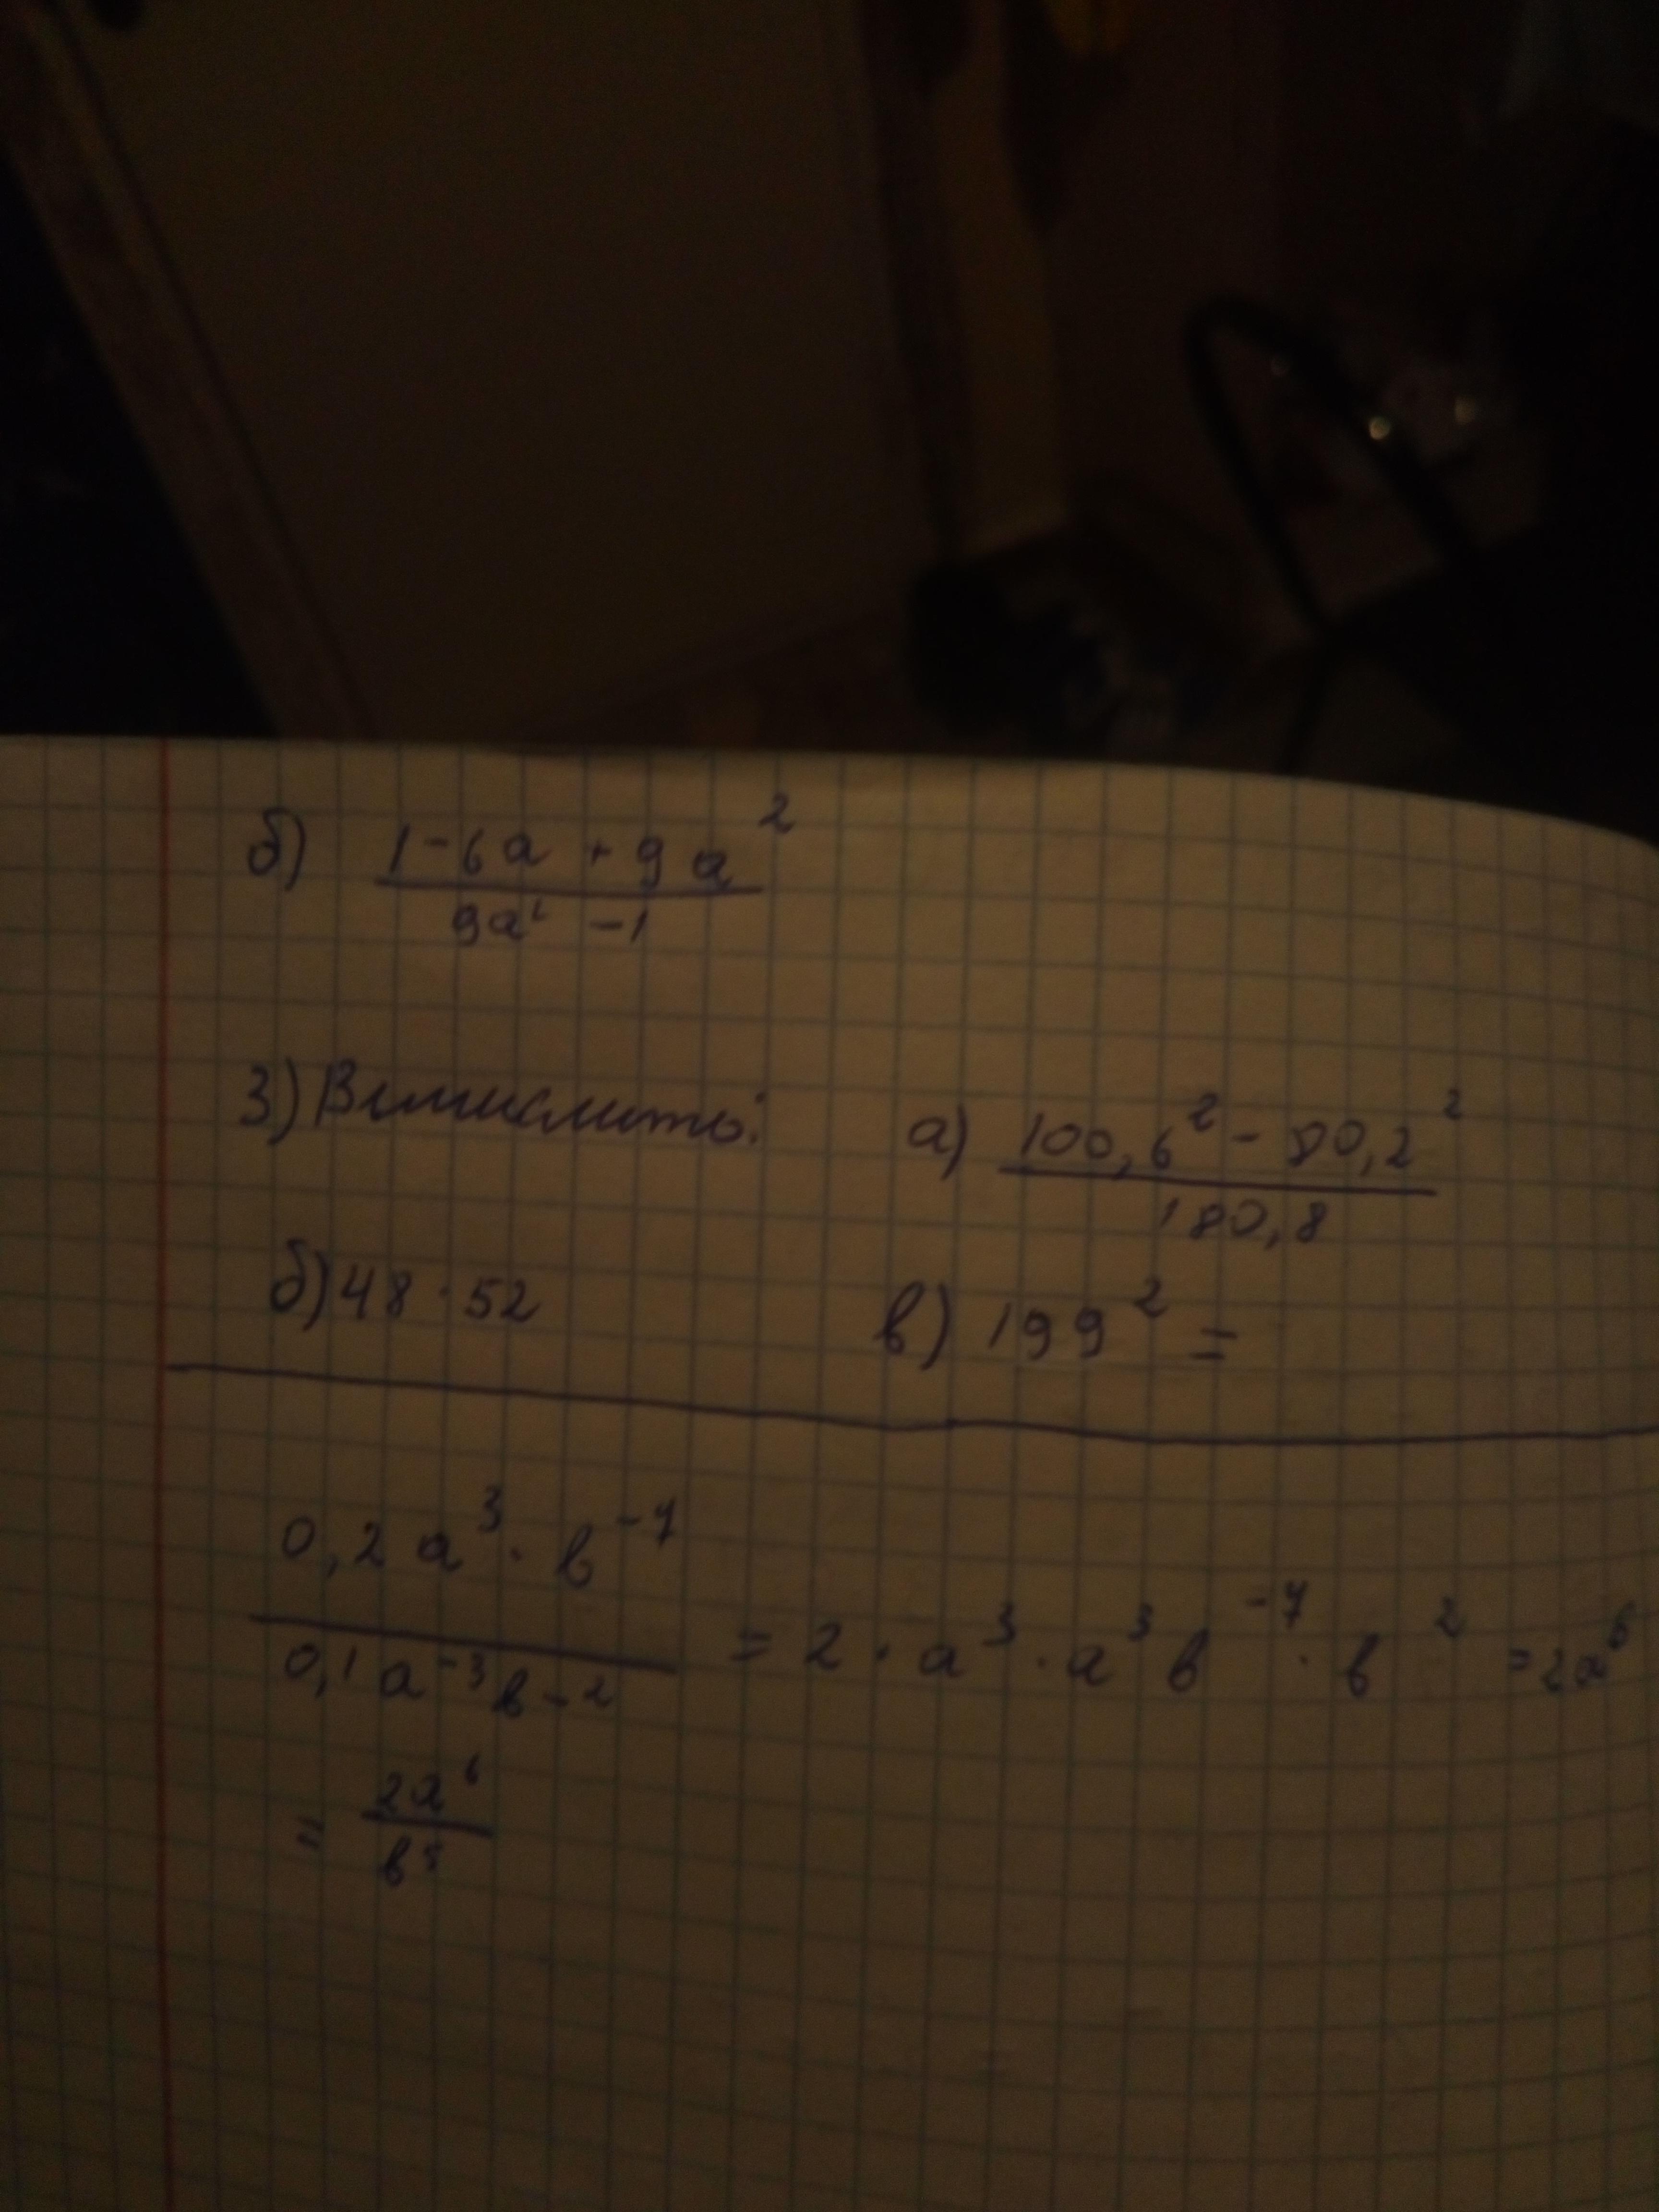 б) (1-6a+9a²)/(9a²-1)
3) Вычислить: а) (100,6²-80,2²)/(180,8)
б) 48·52 в) 199² =
(0,2a³·b⁻⁷)/(0,1a⁻³b⁻²) = 2·a³·a³b⁻⁷·b² = 2a⁶
= (2a⁶)/(b⁵)